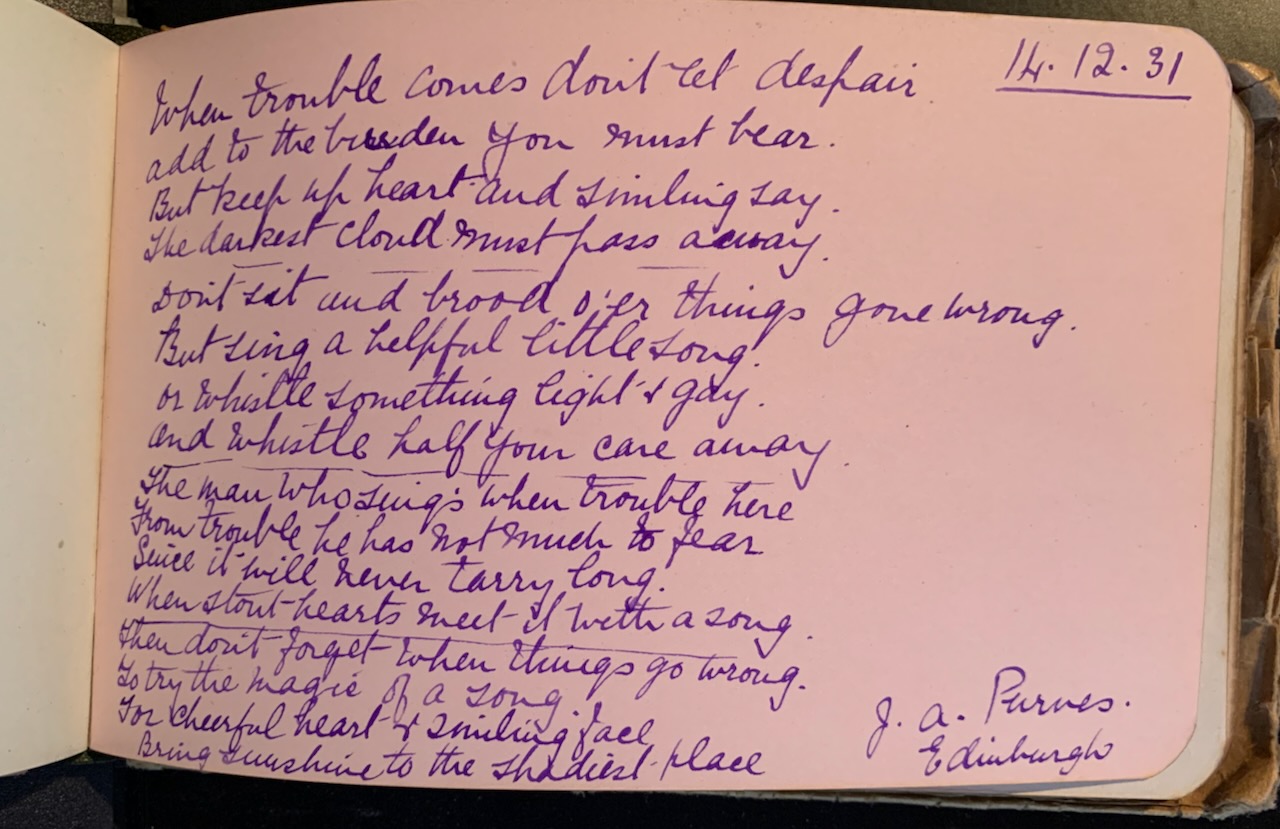 14.12.31
When trouble comes don't let despair
add to the burden you must bear.
But keep up heart and smiling say.
The darkest cloud must pass away.
Don't sit and brood o'er things gone wrong.
But sing a helpful little song.
or whistle something light & gay.
and whistle half your care away.
The man who sing's when trouble here
From trouble he has not much to fear
Since it will never tarry long.
When stout hearts meet it with a song.
Then don't forget when things go wrong.
To try the magic of a song.
For cheerful heart & smiling face
Bring sunshine to the shadiest place
J. A. Purves.
Edinburgh